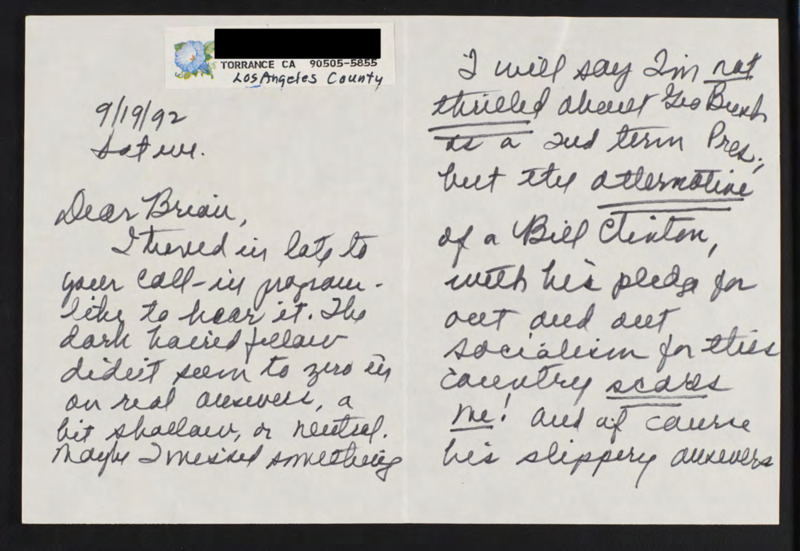 TORRANCE CA 90505-5855
Los Angeles County
9/19/92
Sat eve.
Dear Brian,
I tuned in late to
your call-in program -
like to hear it. The
dark haired fellow
didn't seem to zero in
on real answers, a
bit shallow, or neutral.
Maybe I missed something
I will say I'm not
thrilled about Geo Bush
as a 2nd term Pres.,
but the alternative
of a Bill Clinton,
with his pledge for
out and out
socialism for this
country scares
me! And of course
his slippery answers